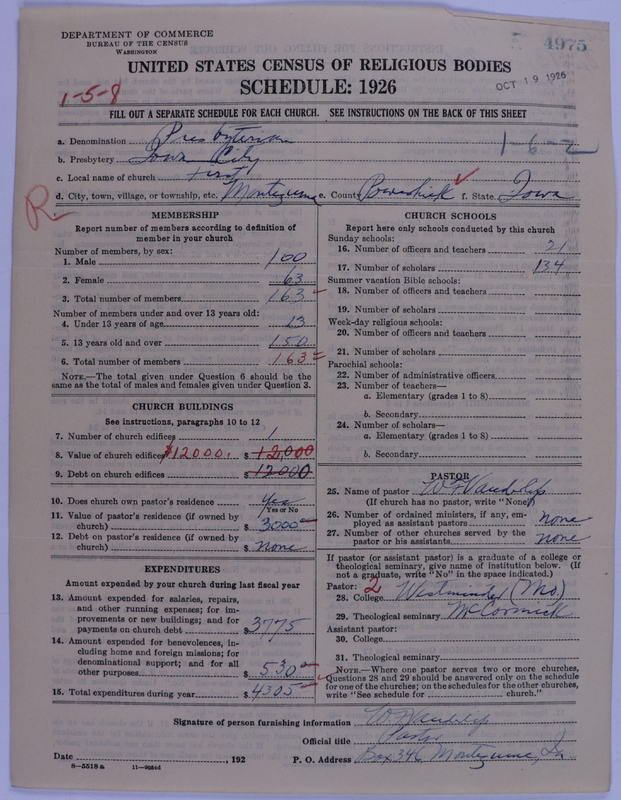 DEPARTMENT OF COMMERCE
BUREAU OF THE CENSUS
WASHINGTON
4975
UNITED STATES CENSUS OF RELIGIOUS BODIES
SCHEDULE: 1926
OCT 19 1926
1-5-8
FILL OUT A SEPARATE SCHEDULE FOR EACH CHURCH. SEE INSTRUCTIONS ON THE BACK OF THIS SHEET
a. Denomination Presbyterian
1-6-2
b. Presbytery Iowa City
c. Local name of church First
d. City, town, village, or township, etc. Montezuma e. County Poweshiek f. State Iowa
R
MEMBERSHIP
Report number of members according to definition of member in your church
Number of members, by sex:
1. Male 100
2. Female 63
3. Total number of members 163
Number of members under and over 13 years old:
4. Under 13 years of age 13
5. 13 years old and over 150
6. Total number of members 163
NOTE.—The total given under Question 6 should be the same as the total of males and females given under Question 3.
CHURCH BUILDINGS
See instructions, paragraphs 10 to 12
7. Number of church edifices 1
8. Value of church edifices $12000. $ 12,000
9. Debt on church edifices $ 12000
10. Does church own pastor's residence Yes
Yes or No
11. Value of pastor's residence (if owned by church) $ 3000
12. Debt on pastor's residence (if owned by church) $ None
EXPENDITURES
Amount expended by your church during last fiscal year
13. Amount expended for salaries, repairs, and other running expenses; for improvements or new buildings; and for payments on church debt $ 3775
14. Amount expended for benevolences, including home and foreign missions; for denominational support; and for all other purposes $ 530
15. Total expenditures during year $ 4305
CHURCH SCHOOLS
Report here only schools conducted by this church
Sunday schools:
16. Number of officers and teachers 21
17. Number of scholars 134
Summer vacation Bible schools:
18. Number of officers and teachers
19. Number of scholars
Week-day religious schools:
20. Number of officers and teachers
21. Number of scholars
Parochial schools:
22. Number of administrative officers
23. Number of teachers—
a. Elementary (grades 1 to 8)
b. Secondary
24. Number of scholars—
a. Elementary (grades 1 to 8)
b. Secondary
PASTOR
25. Name of pastor W F Vanderlip
(If church has no pastor, write "None")
26. Number of ordained ministers, if any, employed as assistant pastors none
27. Number of other churches served by the pastor or his assistants none
If pastor (or assistant pastor) is a graduate of a college or theological seminary, give name of institution below. (If not a graduate, write "No" in the space indicated.)
Pastor: 2
28. College Westminster (Mo.)
29. Theological seminary McCormick
Assistant pastor:
30. College
31. Theological seminary
NOTE.—Where one pastor serves two or more churches, Questions 28 and 29 should be answered only on the schedule for one of the churches; on the schedules for the other churches, write "See schedule for church."
Signature of person furnishing information W F Vanderlip
Official title Pastor
Date , 192 P. O. Address Box 346, Montezuma, Ia
8-5518a 11-9264d